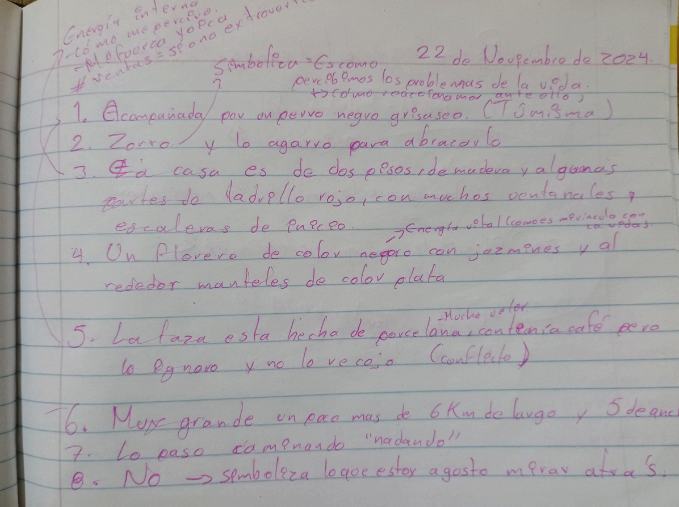 Energía interna
-Cómo me percivo.
-Mefuerza yoPica
# ventas = si o no extrover
22 de Novpembre de 2024.
Simboliza = Es como
percebemos los problemas de la vida.
↳ como reacciono ante ello,
1. Acompañada por un perro negro grisaseo. (TÚ misma)
2. Zorro y lo agarro para abracarlo
3. La casa es de dos pesos, de madera y algunas
partes de ladrello rojo, con muchos ventanales,
escaleras de
→ Energía vital (como es mi vinculo con la vida)
4. Un Florero de color negro con jazmines y al
rededor manteles de color plata
-Mucho valor
5. La taza esta hecha de porcelana, contenía café pero
lo ignoro y no lo recojo (conflecto)
6. Muy grande un poco mas de 6 Km de largo y 5 de anc
7. Lo paso camenando "nadando"
8. No → semboleza loque estoy agosto mirar atra's.